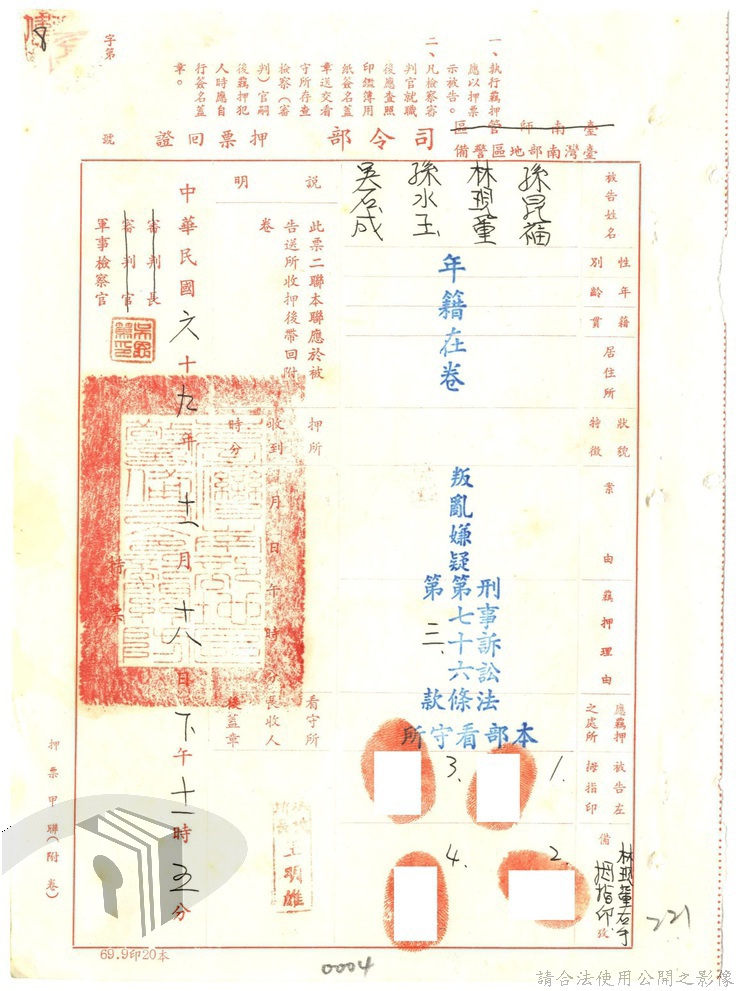 字第
號
一、執行羈押
應以押票
示被告。
二、凡檢察審
判官就職
後應查照
印鑑簿用
紙簽名蓋
章送交看
守所存查
檢察(審
判)官嗣
後羈押犯
人時應自
行簽名蓋
章。
臺南師管區
臺灣南部地區警備
司令部
押票回證
被告姓名
孫昆福
林現董
孫水玉
吳石成
性別
年齡
籍貫
年籍在卷
居住所
狀貌
特徵
案由
叛亂嫌疑
羈押理由
刑事訴訟法
第七十六條
第三、款
應羈押
之處所
本部看守所
被告左
拇指印
1.
2.
3.
4.
備
號
林現董右手
拇指印
說明
此票二聯本聯應於被
告送所收押後帶回附
卷
押所
收到
月日午時分
時分
看守所
長收人
後蓋章
王明雄
中華民國六十九年十一月十八日下午十一時五分
審判長
審判官
軍事檢察官
押票
押票甲聯(附卷)
69.9印20本
0004
221
8
請合法使用公開之影像